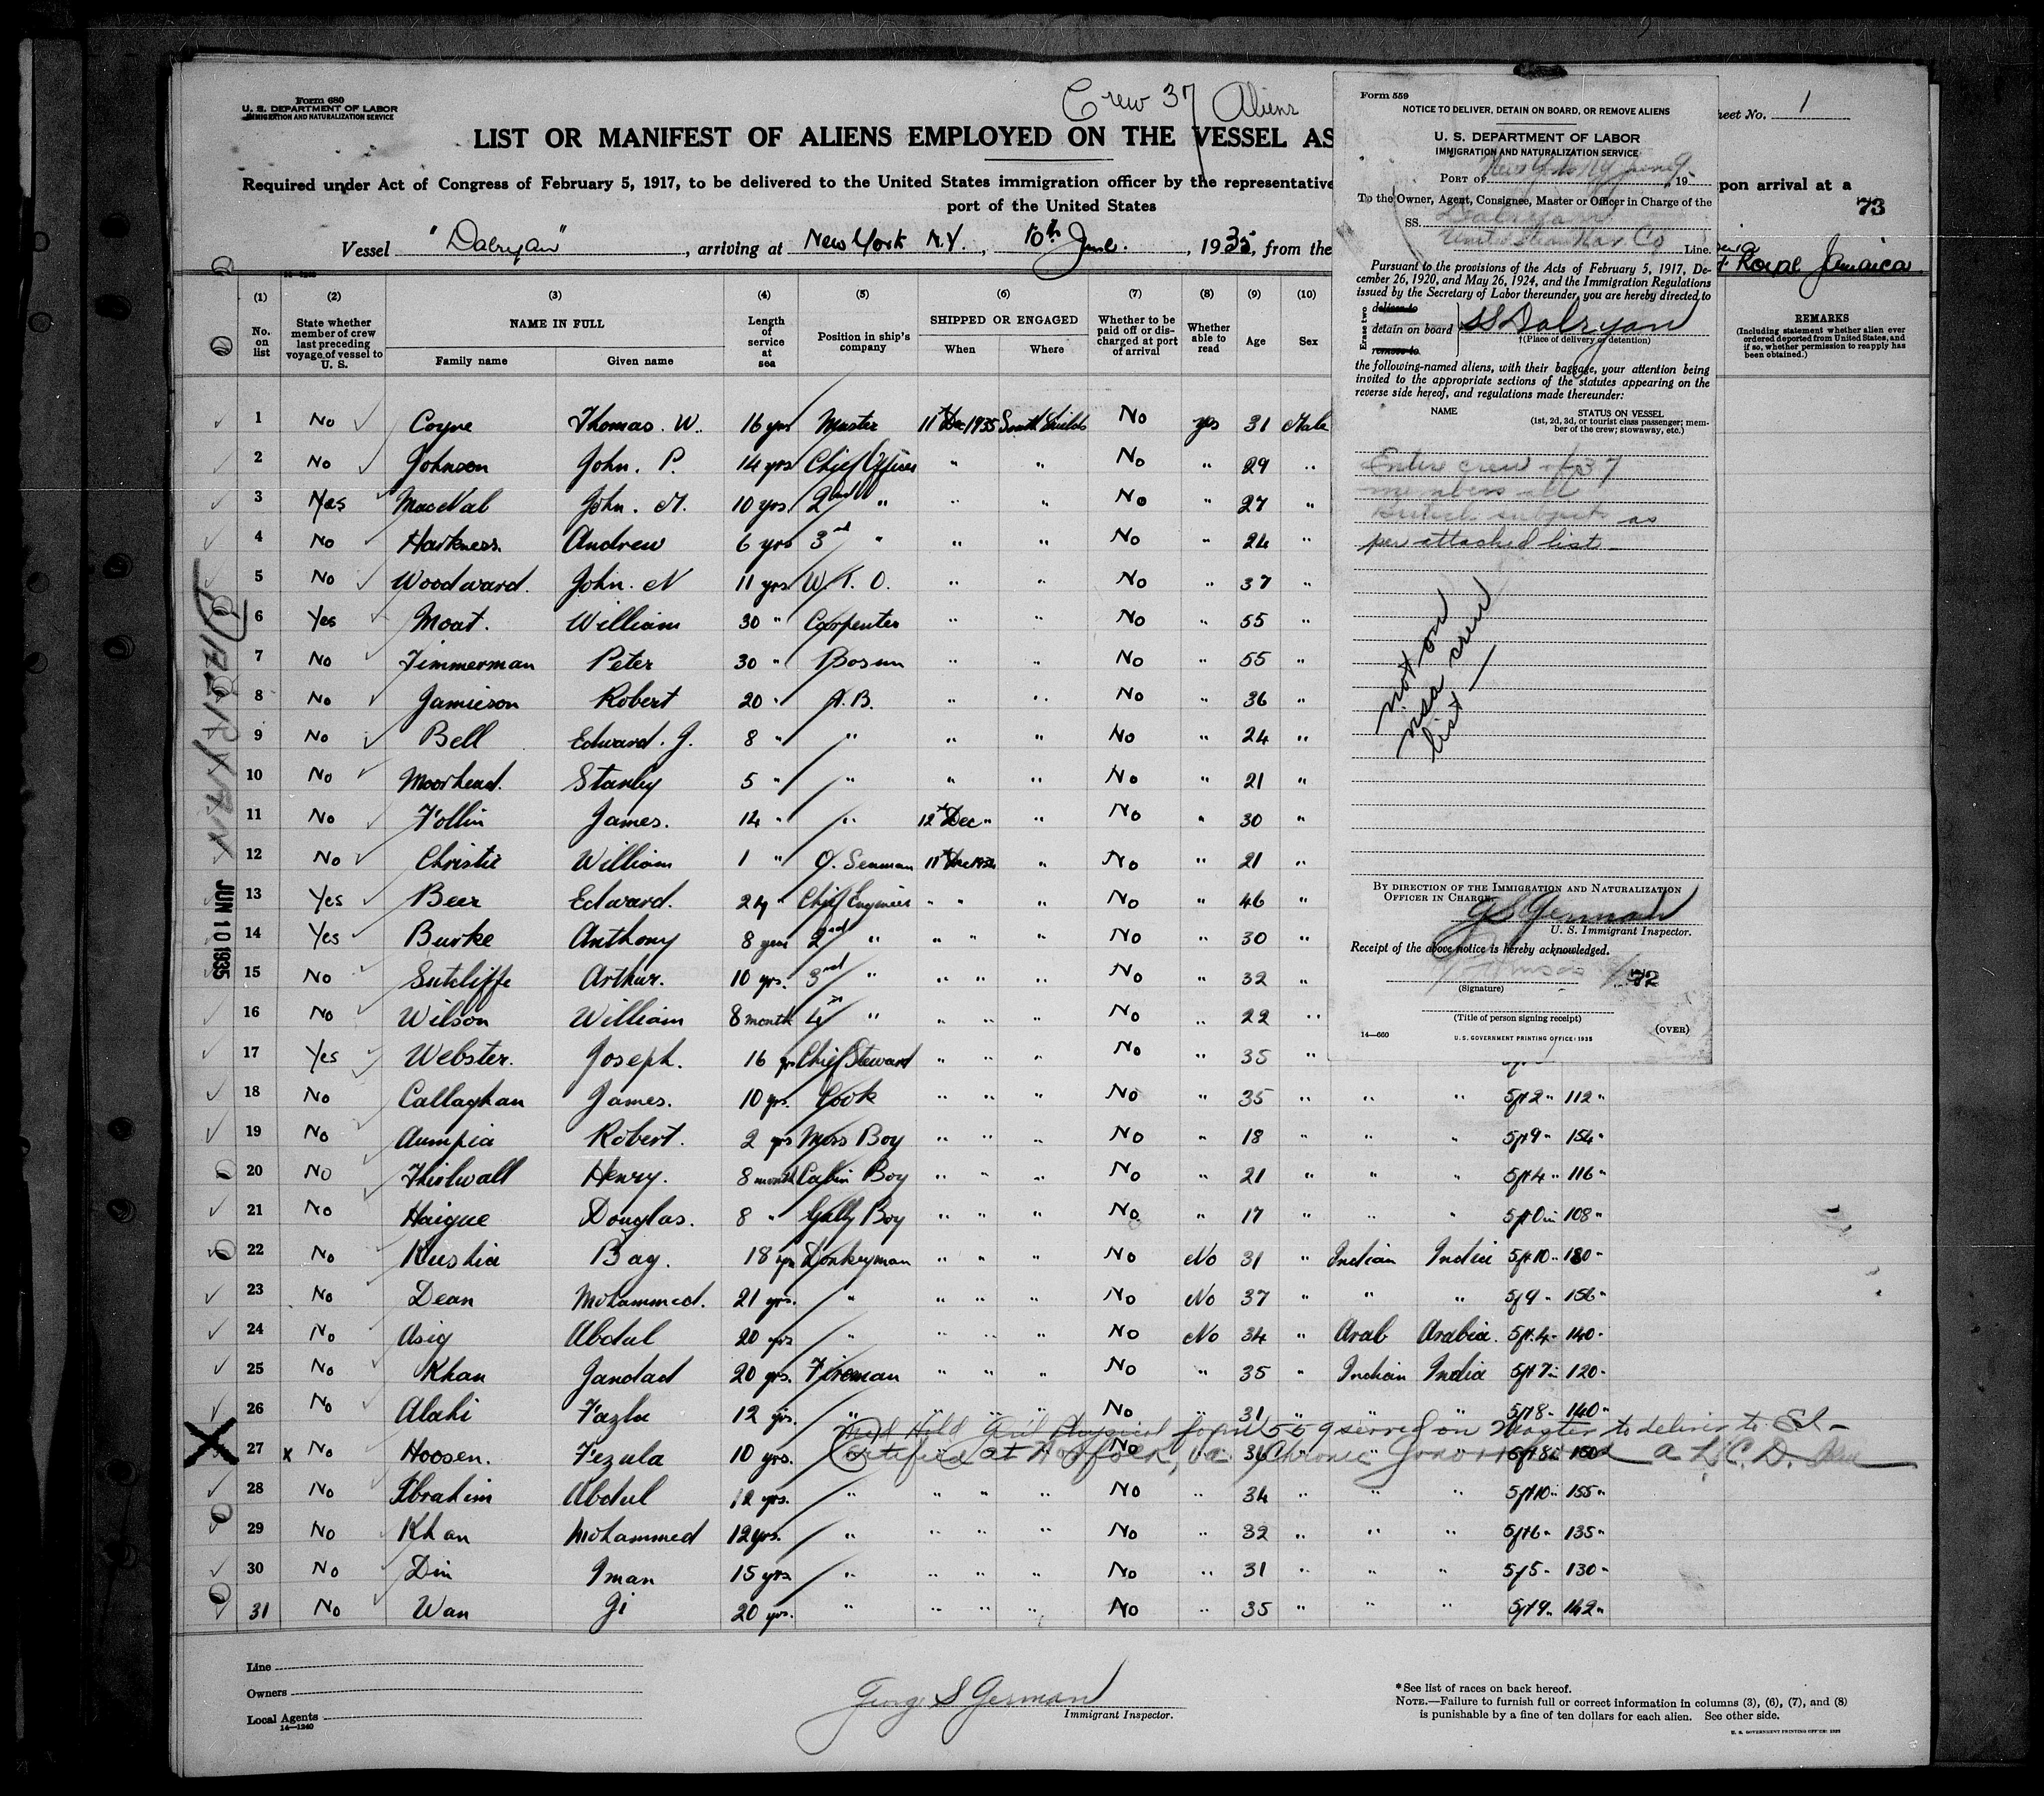 Crew 37 Aliens
Form 680
U. S. DEPARTMENT OF LABOR
IMMIGRATION AND NATURALIZATION SERVICE
LIST OR MANIFEST OF ALIENS EMPLOYED ON THE VESSEL AS
Required under Act of Congress of February 5, 1917, to be delivered to the United States immigration officer by the representative
port of the United States
Vessel "Dalryan", arriving at New York N.Y., 10th June, 1935, from the
(1) (2) (3) (4) (5) (6) (7) (8) (9) (10)
No. on list
State whether member of crew last preceding voyage of vessel to U. S.
NAME IN FULL
Family name Given name
Length of service at sea
Position in ship's company
SHIPPED OR ENGAGED
When Where
Whether to be paid off or discharged at port of arrival
Whether able to read
Age
Sex
1 No Coyne Thomas. W. 16 yrs Master 11th Dec 1935 South Shields No yes 31 Male
2 No Johnson John. P. 14 yrs Chief Officer " " No " 29 "
3 Yes John. 10 yrs. 2nd " " " No " 27 "
4 No Harkness. Andrew 6 yrs 3rd " " " No " 24 "
5 No Woodward. John. N 11 yrs W. T. O. " " No " 37 "
6 Yes Moat. William 30 " Carpenter " " No " 55 "
7 No Timmerman Peter 30 " Bosun " " No " 55 "
8 No Jamieson Robert 20 " A.B. " " No " 36 "
9 No Bell Edward. J. 8 " " " " No " 24 "
10 No Moorhead. Stanley 5 " " " " No " 21 "
11 No Follin James. 14 " " 12th Dec " " No " 30 "
12 No Christie William 1 " O. Seaman 11th " No " 21 "
13 Yes Beer Edward. 24 " Chief Engineer " " " No " 46 "
14 Yes Burke Anthony 8 years 2nd " " " " No " 30 "
15 No Sutcliffe Arthur. 10 yrs. 3rd " " " " No " 32 "
16 No Wilson William 8 month 4th " " " " No " 22 "
17 Yes Webster. Joseph. 16 yrs Chief Steward " " " No " 35 "
18 No Callaghan James. 10 yrs. Cook " " " No " 35 " " " 5ft 2" 112"
19 No Aumpia Robert. 2 yrs Mess Boy " " " No " 18 " " " 5ft 9" 154"
20 No Thirlwall Henry. 8 month Cabin Boy " " " No " 21 " " " 5ft 4" 116"
21 No Haigue Douglas. 8 " Gally Boy " " " No " 17 " " " 5ft 0in 108"
22 No Kushia Bag. 18 yrs Donkeyman " " " No No 31 " Indian India 5ft 10" 180"
23 No Dean Mohammed. 21 yrs. " " " " No No 37 " " " 5ft 9" 156"
24 No Asig Abdul 20 yrs " " " " No No 34 " Arab Arabia. 5ft 4" 140"
25 No Khan Jandad 20 yrs. Fireman " " " No " 35 " Indian India 5ft 7in 120"
26 No Alahi Fazla 12 yrs. " " " " No " 31 " " " 5ft 8" 140"
Form 559 served on Master to deliver to E.I.
27 x No Hoosen. Fezula 10 yrs. No 36 5ft 8in 150
Certified at Norfolk, Va. Chronic
28 No Ibrahim Abdul 12 yrs. " " " " No " 34 " " " 5ft 10" 155"
29 No Khan Mohammed 12 yrs. " " " " No " 32 " " " 5ft 6" 135"
30 No Din Iman 15 yrs " " " " No " 31 " " " 5ft 5" 130"
31 No Wan Gi 20 yrs. " " " " No " 35 " " " 5ft 9" 142"
JUN 10 1935
Line
Owners
Local Agents
14—1240
George S German
Immigrant Inspector.
*See list of races on back hereof.
NOTE.—Failure to furnish full or correct information in columns (3), (6), (7), and (8)
is punishable by a fine of ten dollars for each alien. See other side.
U. S. GOVERNMENT PRINTING OFFICE: 1932
Form 559
NOTICE TO DELIVER, DETAIN ON BOARD, OR REMOVE ALIENS
U. S. DEPARTMENT OF LABOR
IMMIGRATION AND NATURALIZATION SERVICE
PORT OF New York NY June 9 19
To the Owner, Agent, Consignee, Master or Officer in Charge of the
SS. Dalryan
United Steam Nav. Co Line.
Pursuant to the provisions of the Acts of February 5, 1917, De-
cember 26, 1920, and May 26, 1924, and the Immigration Regulations
issued by the Secretary of Labor thereunder, you are hereby directed to
Erase two
deliver to
detain on board SS Dalryan
remove to
†(Place of delivery or detention)
the following-named aliens, with their baggage, your attention being
invited to the appropriate sections of the statutes appearing on the
reverse side hereof, and regulations made thereunder:
NAME STATUS ON VESSEL
(1st, 2d, 3d, or tourist class passenger; mem-
ber of the crew; stowaway, etc.)
Entire crew of 37
members all
British subjects as
per attached list
not on
nsa crew
list —
BY DIRECTION OF THE IMMIGRATION AND NATURALIZATION
OFFICER IN CHARGE.
G S German
U. S. Immigrant Inspector.
Receipt of the above notice is hereby acknowledged.
72
(Signature)
(Title of person signing receipt)
14—660 U. S. GOVERNMENT PRINTING OFFICE: 1933 (OVER)
heet No. 1
pon arrival at a
73
Royal Jamaica
REMARKS
(Including statement whether alien ever
ordered deported from United States, and
if so, whether permission to reapply has
been obtained.)